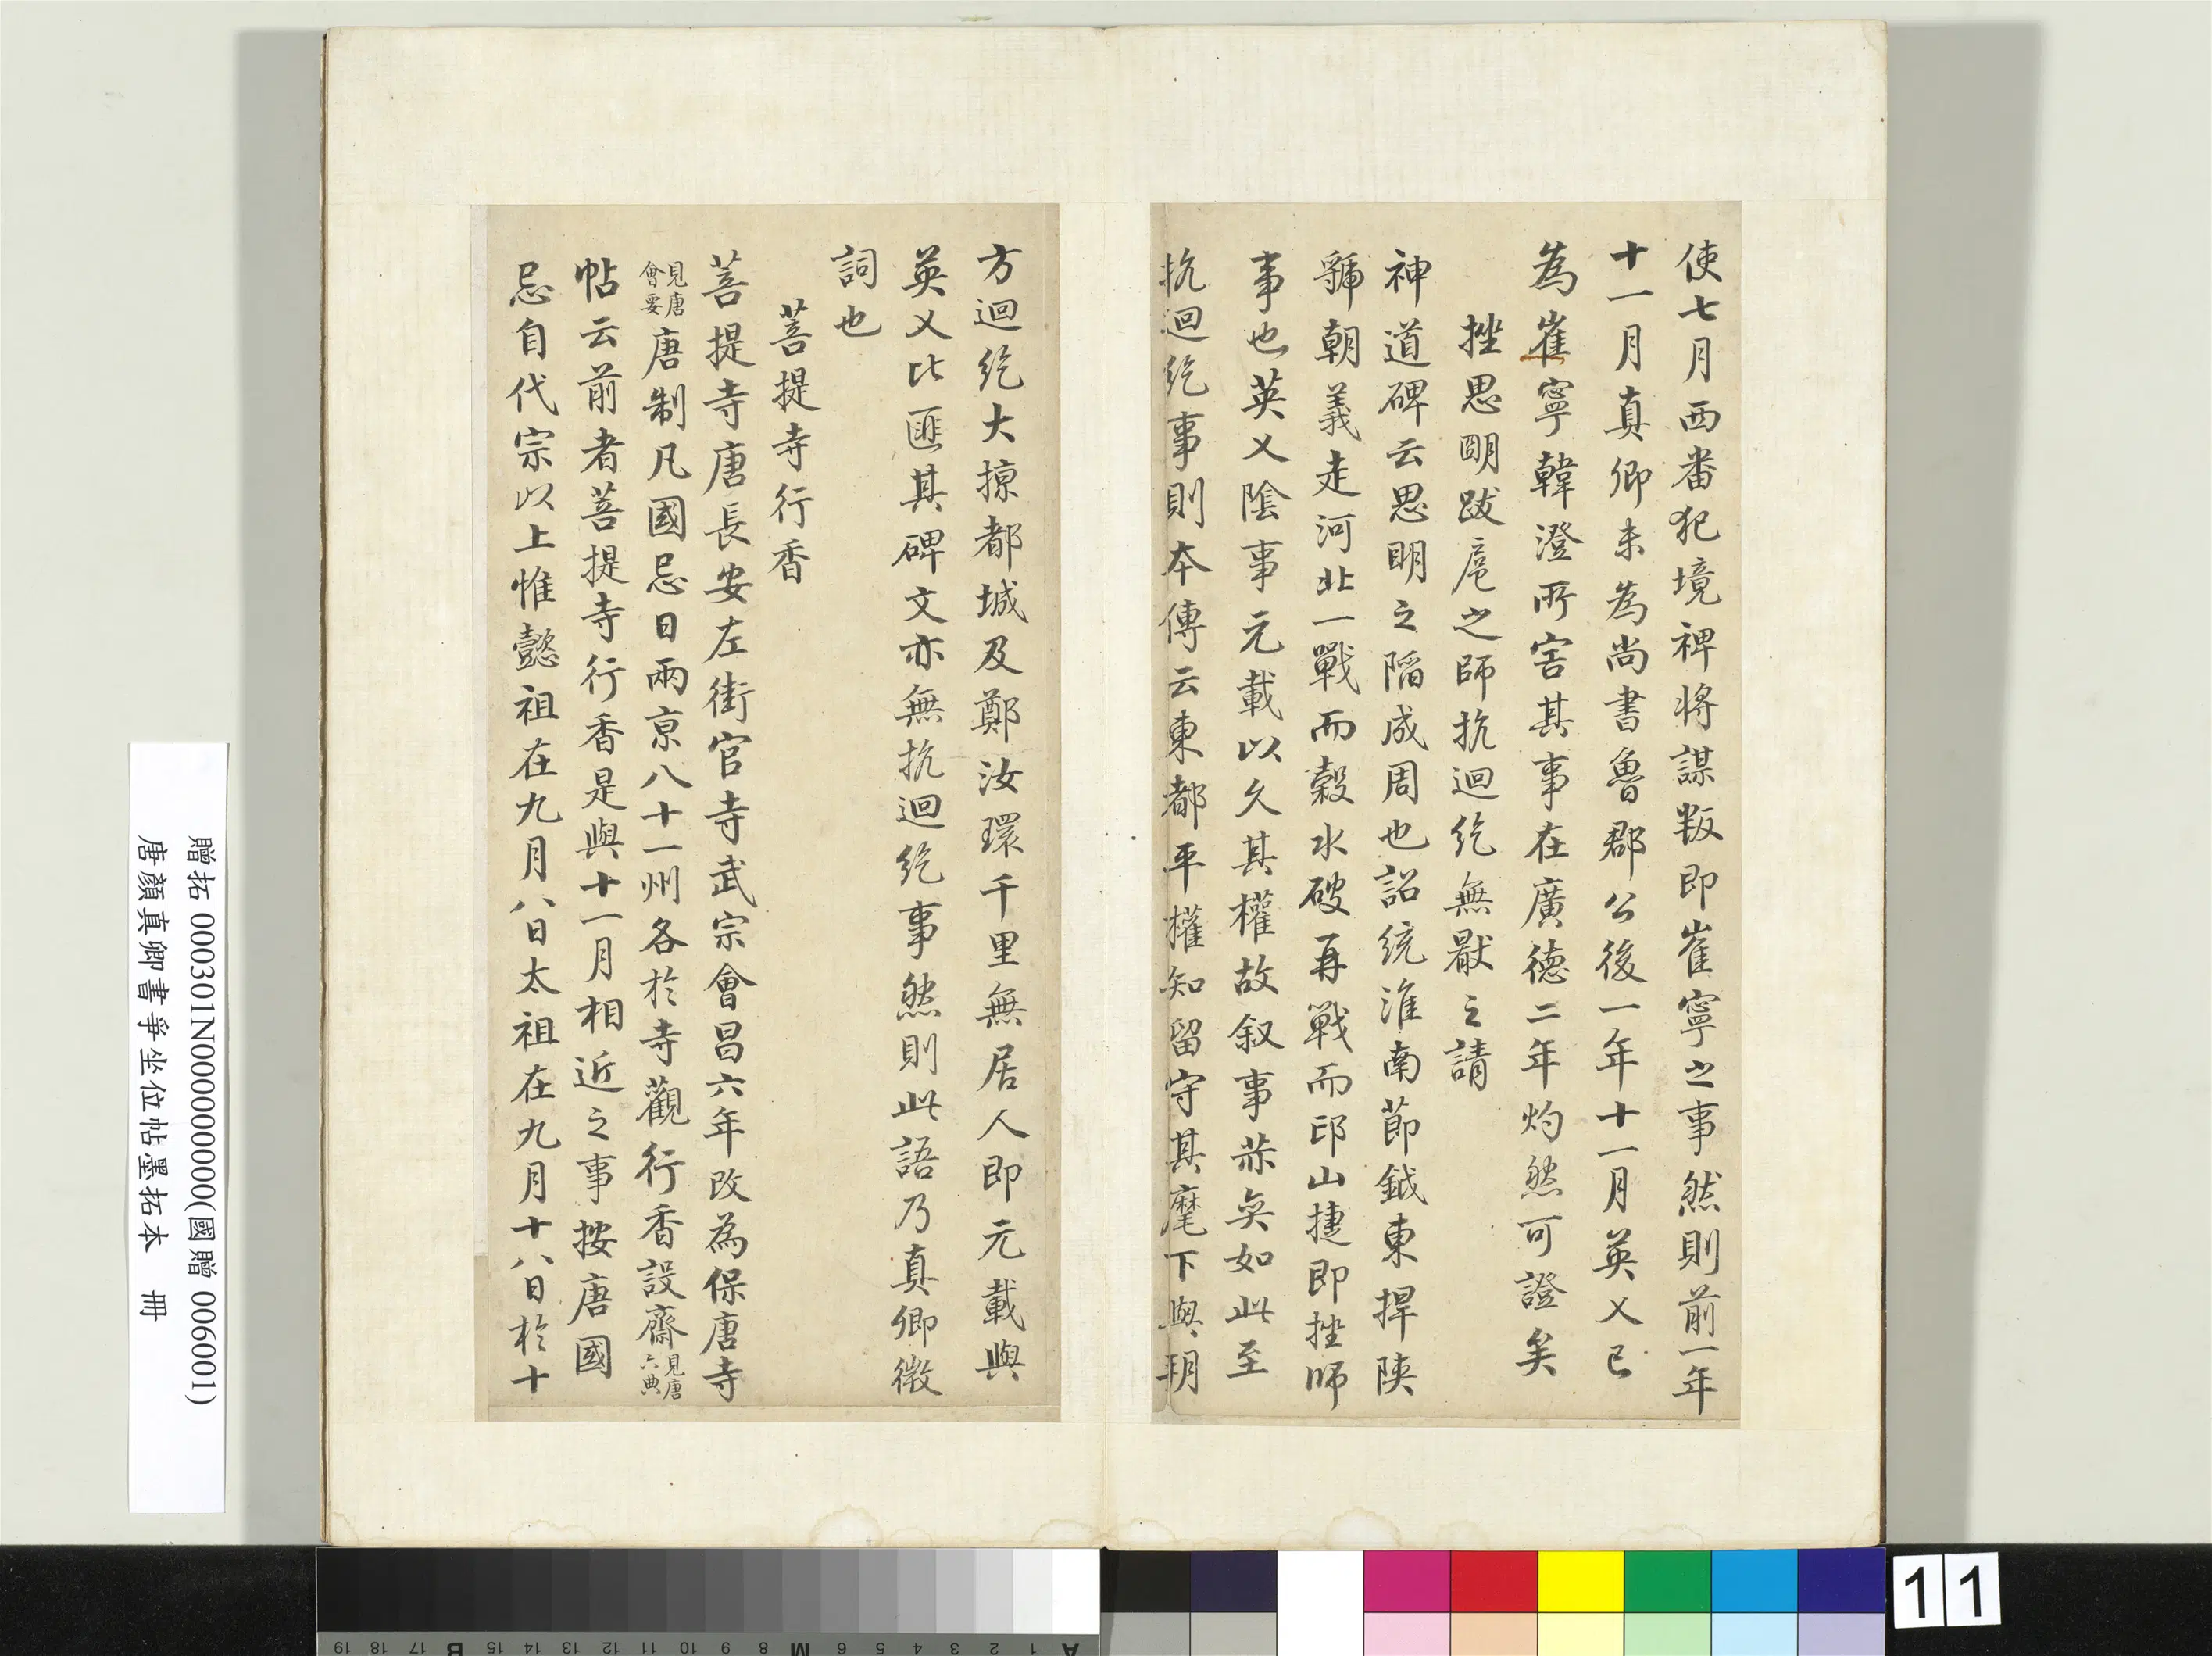 使七月西番犯境裨將謀叛即崔寧之事然則前一年
十一月真卿未為尚書魯郡公後一年十一月英乂已
為崔寧韓澄所害其事在廣德二年灼然可證矣
挫思明跋扈之師抗迴紇無厭之請
神道碑云思明之陷成周也詔統淮南節鉞東捍陝
虢朝義走河北一戰而穀水破再戰而邙山捷即挫師
事也英乂陰事元載以久其權故叙事菾矣如此至
抗迴紇事則本傳云東都平權知留守其麾下與朔
方迴紇大掠都城及鄭汝環千里無居人即元載與
英乂比匪其碑文亦無抗迴紇事然則此語乃真卿徵
詞也
菩提寺行香
菩提寺唐長安左街官寺武宗會昌六年改為保唐寺
見唐會要唐制凡國忌日兩京八十一州各於寺觀行香設齋見唐六典
帖云前者菩提寺行香是與十一月相近之事按唐國
忌自代宗以上惟懿祖在九月八日太祖在九月十八日於十
贈拓 000301N000000000(國贈 006001)
唐顏真卿書爭坐位帖墨拓本 冊
11
A 1 2 3 4 5 6 M 8 9 10 11 12 13 14 15 B 17 18 19